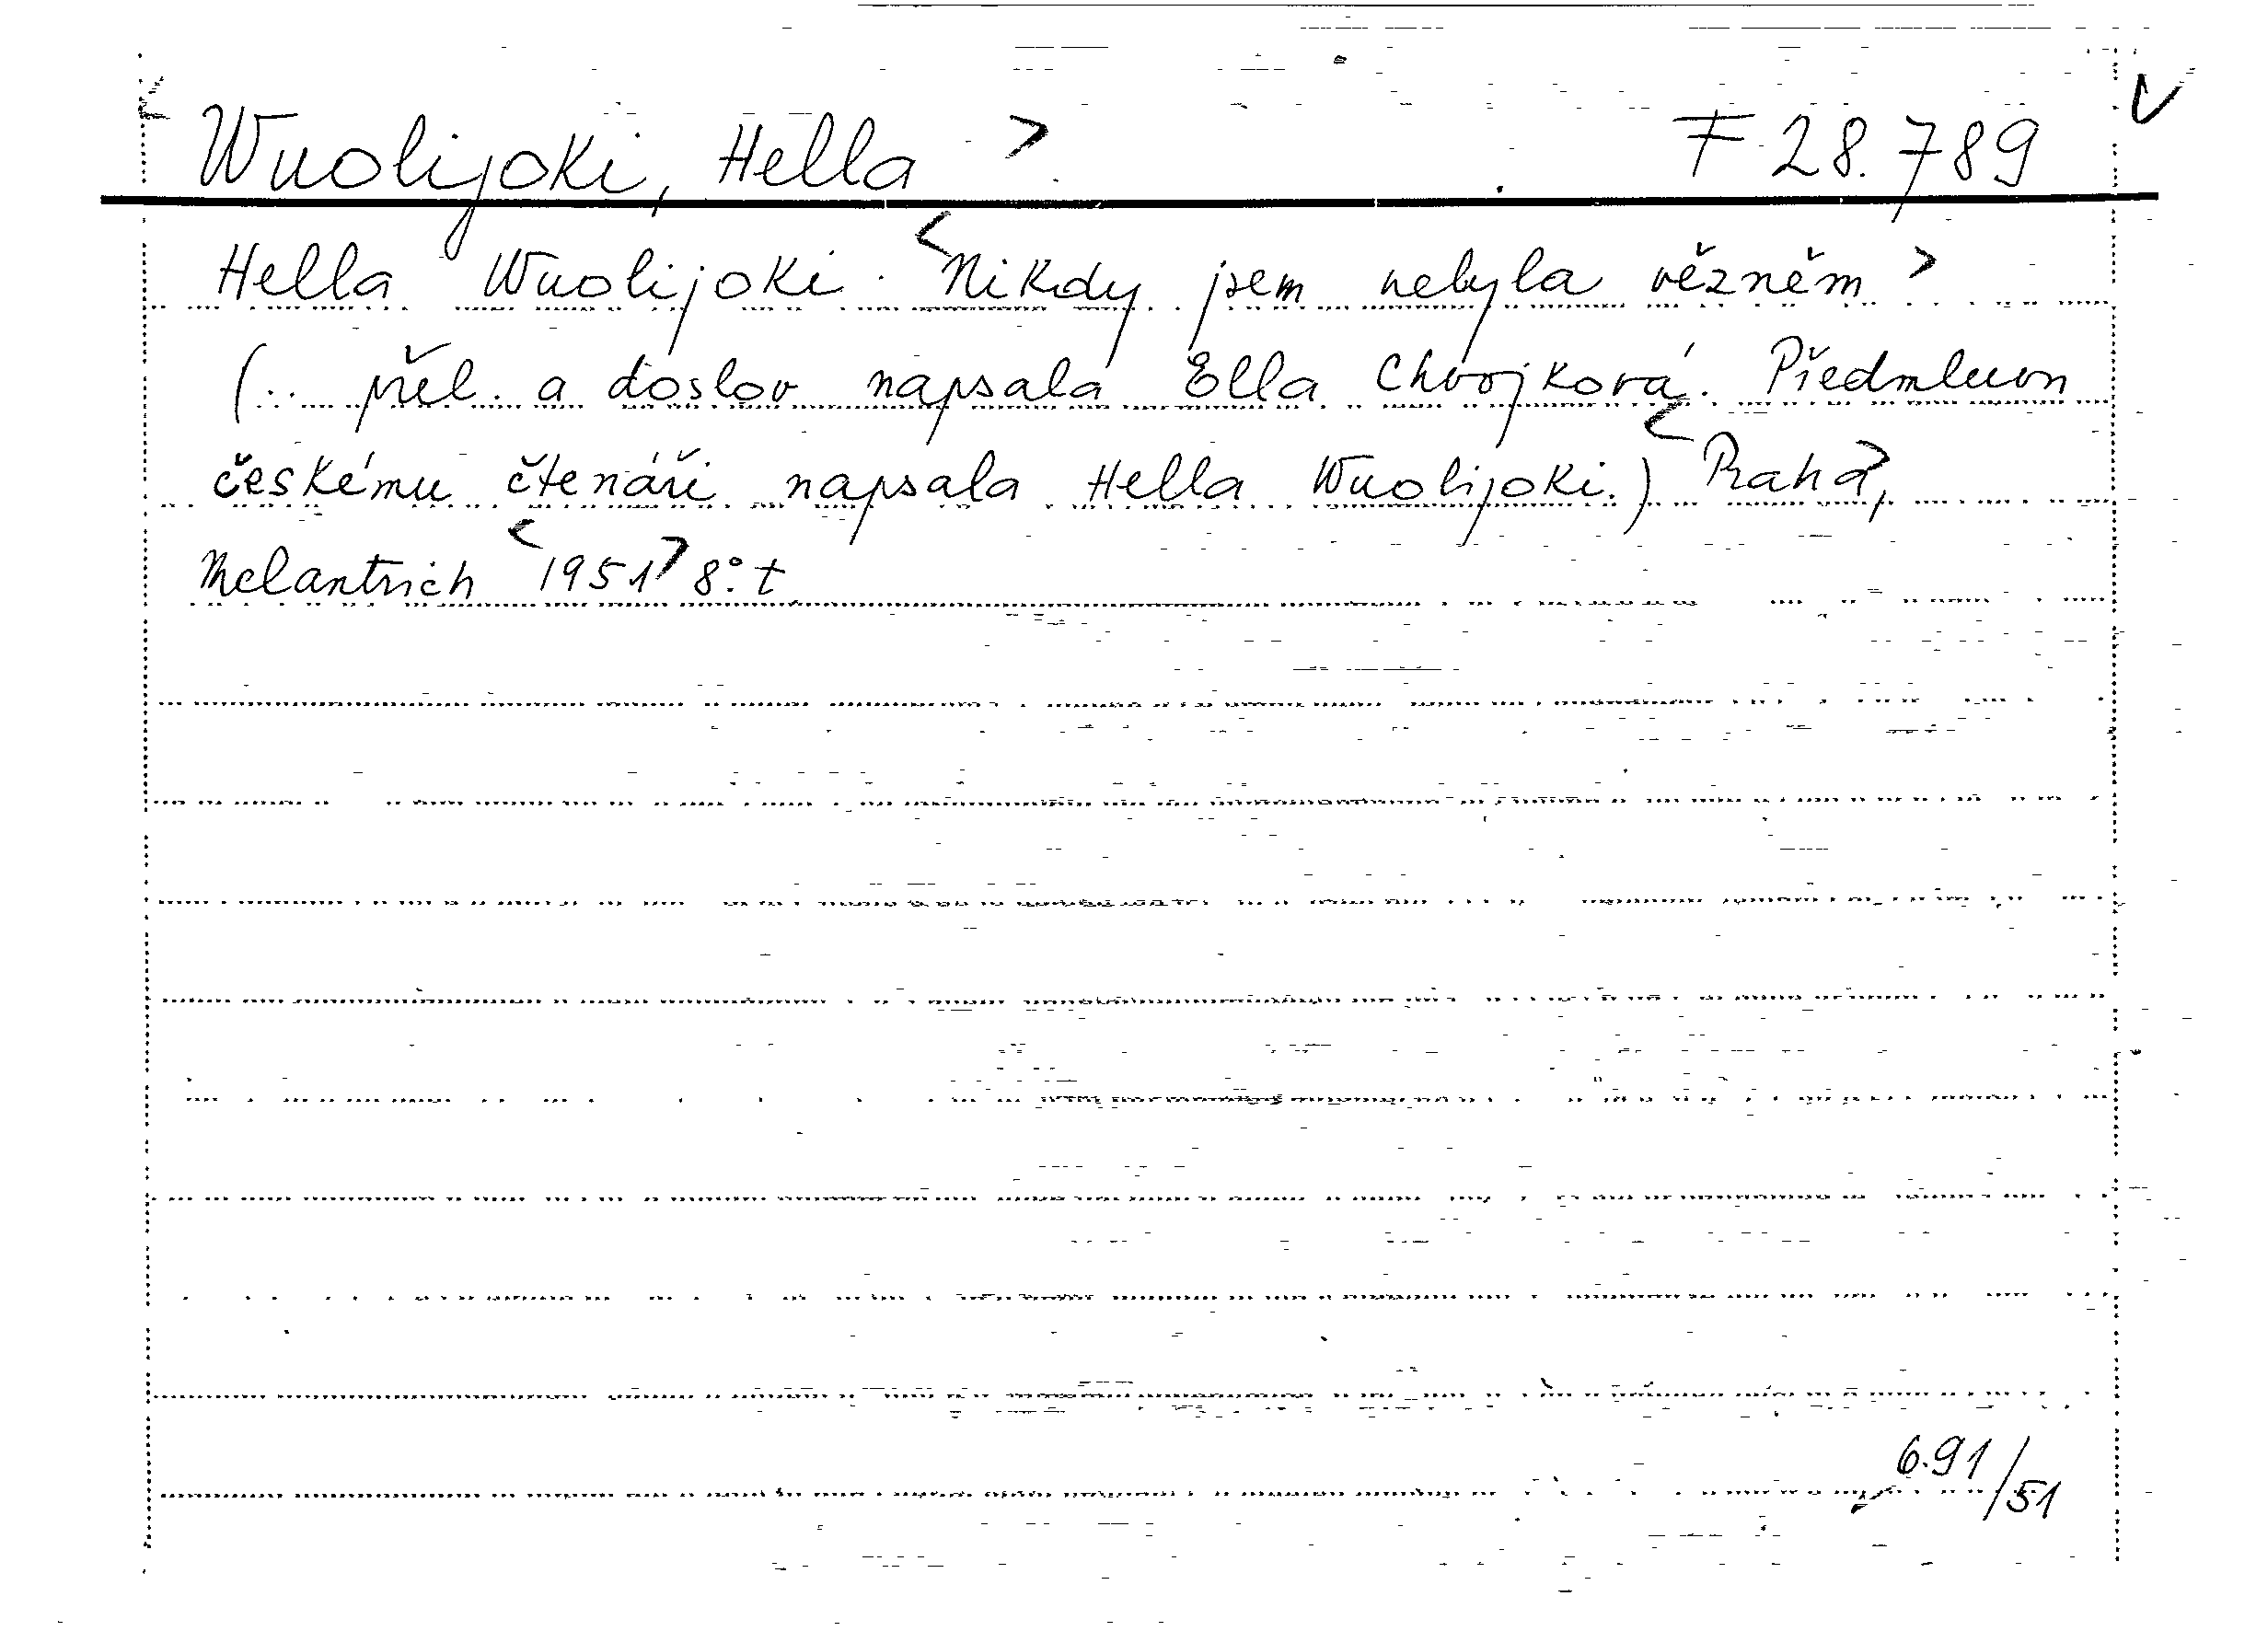 Wuolijoki, Hella > F 28.789 V
Hella Wuolijoki. <Nikdy jsem nebyla vězněm>
(.. přel. a doslov napsala Ella Chvojková. Předmluvu
českému čtenáři napsala Hella Wuolijoki.) <Praha>,
Melantrich <1951> 8°. t
6.91/51